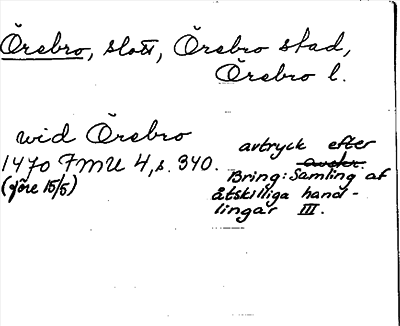 Örebro, slott, Örebro stad,
Örebro l.
wid Örebro
1470 FMU 4, s. 340.
(före 15/5)
avtryck efter
Bring: Samling af
åtskilliga hand-
lingar III.